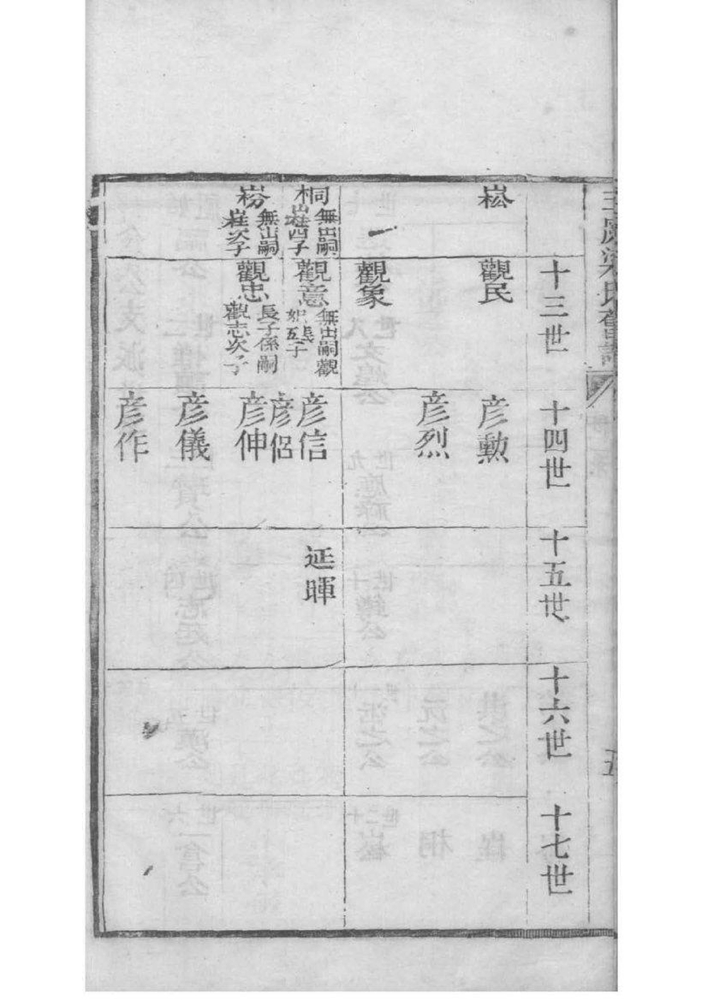 十三世
十四世
十五世
十六世
十七世
崧
觀民
彥勲
彥烈
觀象
桐
無出嗣
崔四子
觀意
無出嗣觀
恕長
五子
彥信
延暉
彥侶
崯
無出嗣
崔次子
觀忠
長子係嗣
觀志次子
彥伸
彥儀
彥作